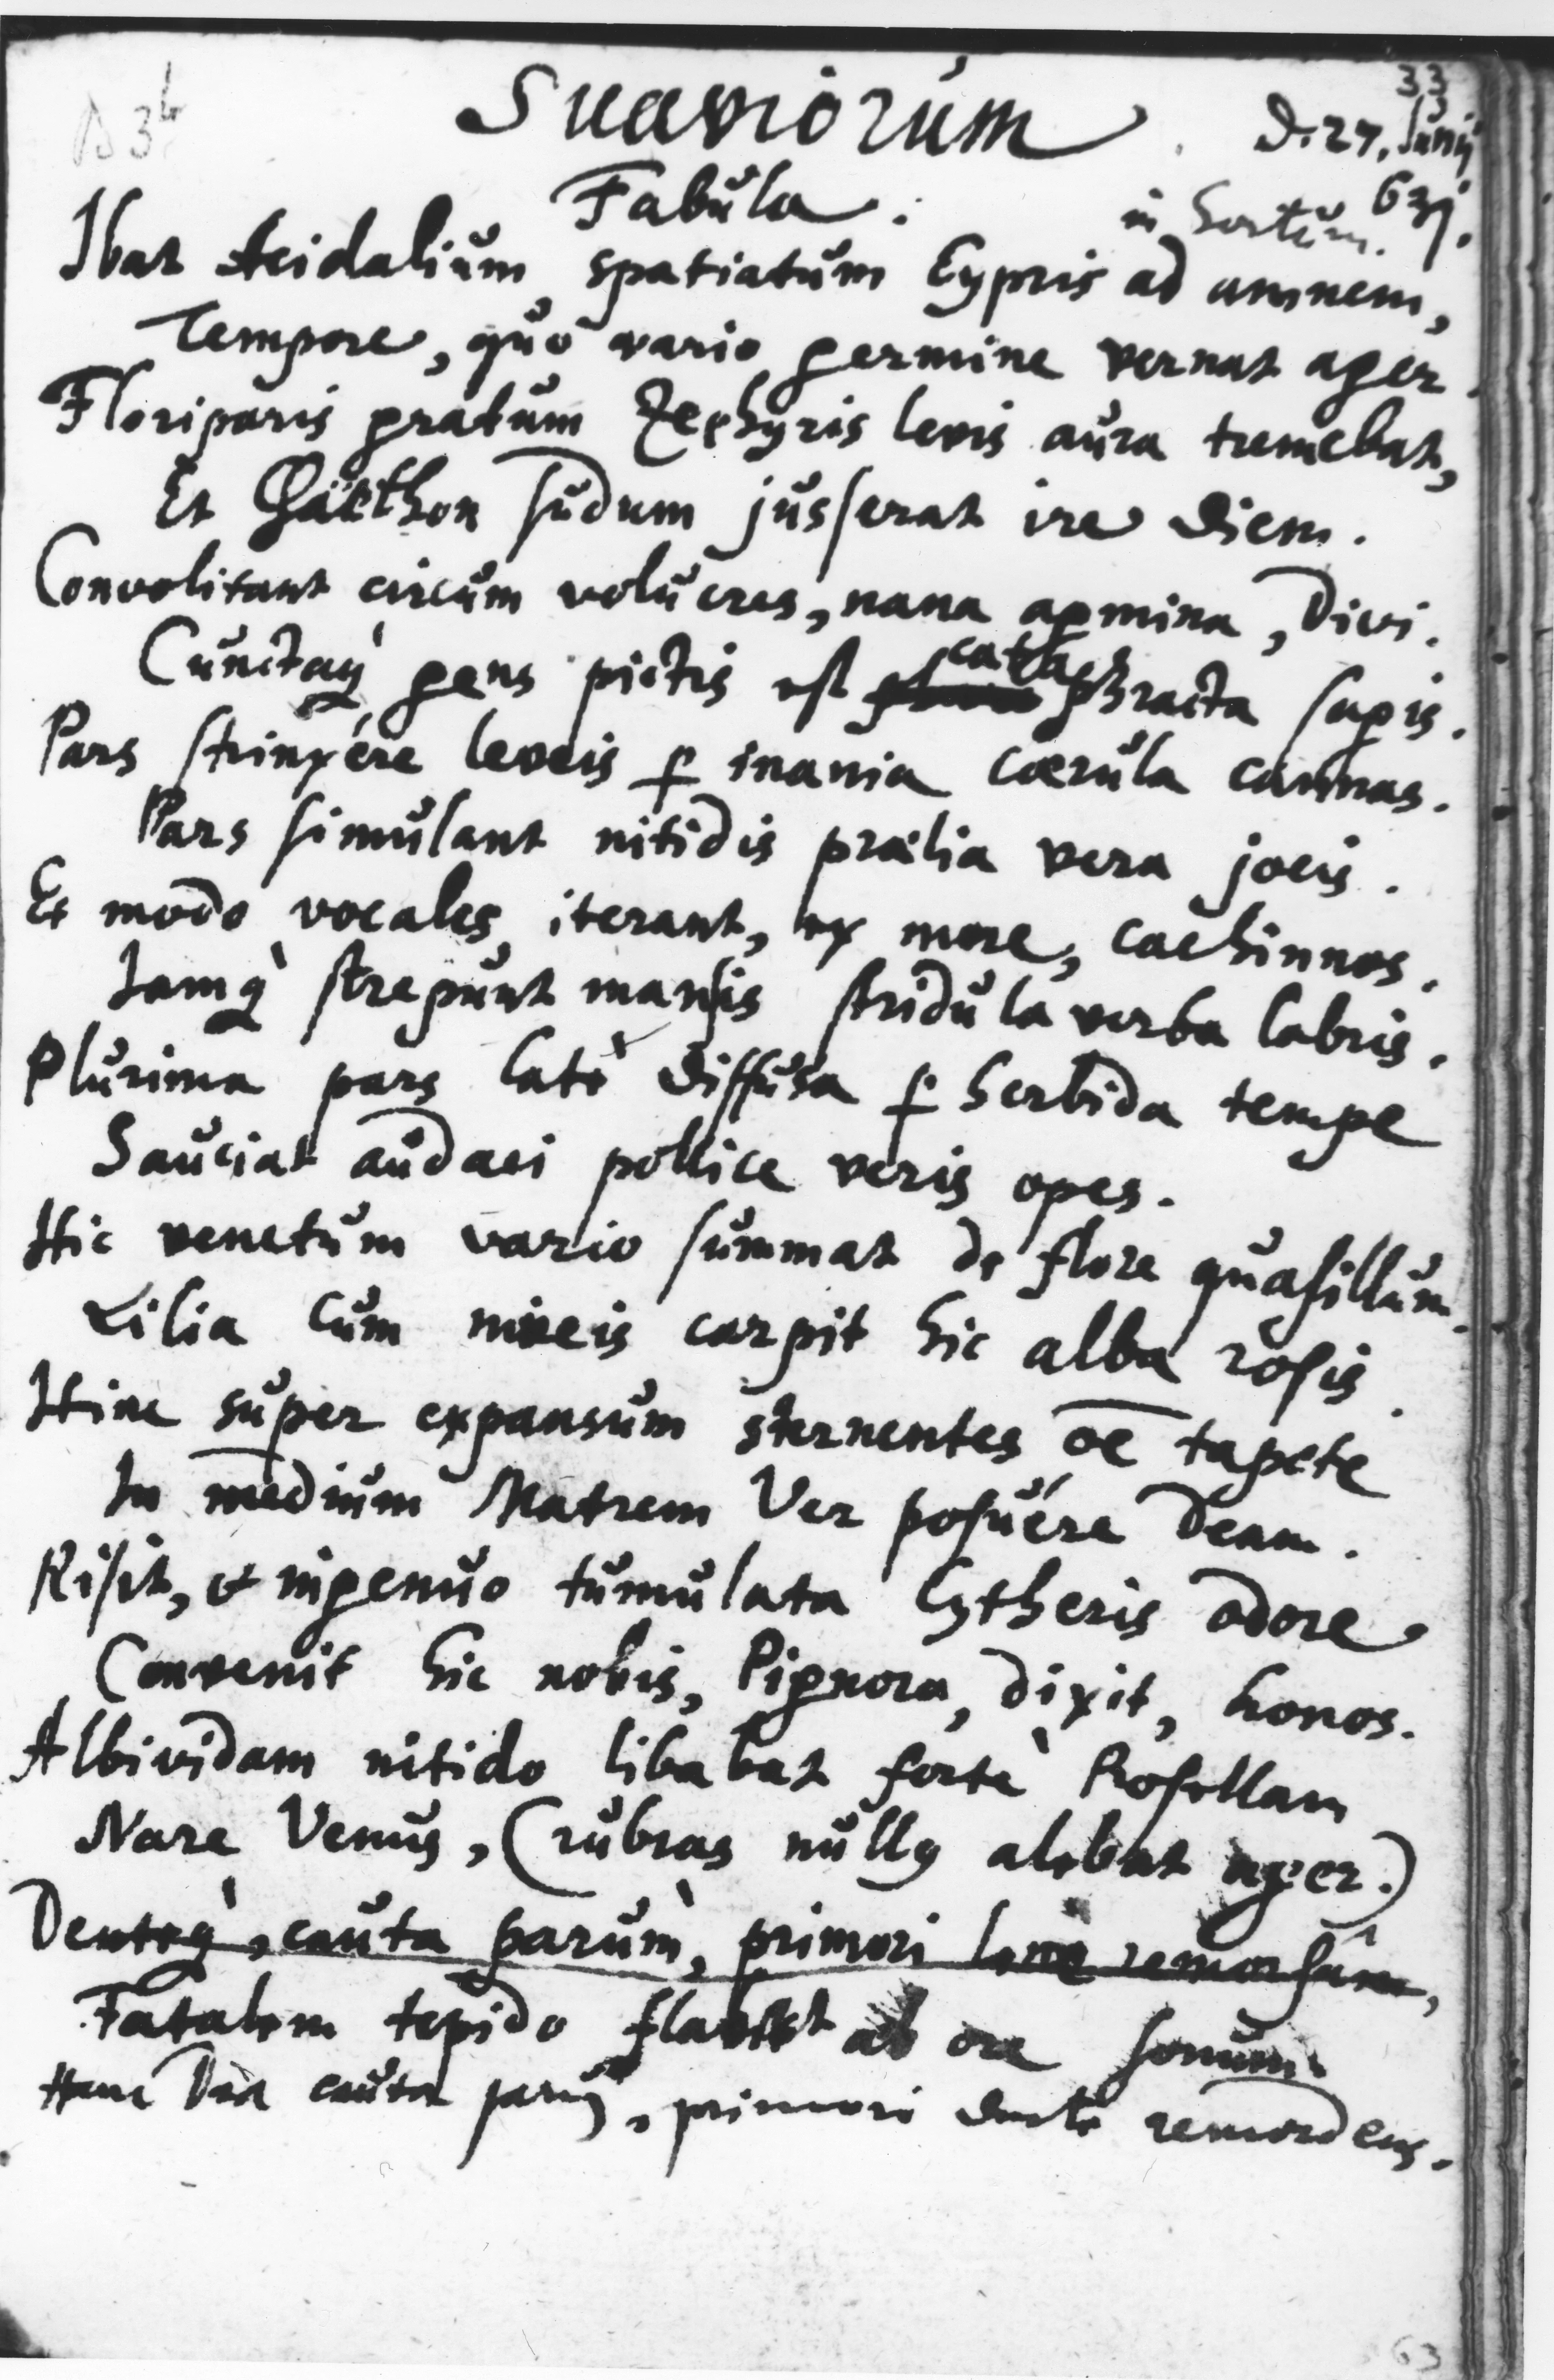 33
B 3b
Suaviorum. D. 27. Junij
Fabula. in hortum. 631.
Ibat Acidalium spatiatum Cypris ad amnem,
Tempore, quo vario germine vernat ager.
Floriparis pratum Zephyris levis aura tremebat,
Et Phaëthon sudum jusserat ire diem.
Convolitant circum volucres, nana agmina, Divi.
Cunctaq́ gens pictis est cataphracta sagis.
Pars strinxére leveis p inania cærula cannas.
Pars simulant nitidis prælia vera jocis.
Et modo vocales iterant, ex more, cachinnos.
Jamq́ strepunt mansis stridula verba labris.
Plurima pars latè diffusa p herbida tempe
Sauciat audaci pollice veris opes.
Hic venetum vario summat de flore quasillum.
Lilia cum niveis carpit hic alba rosis.
Hinc super expansum sternentes oē tapete
In medium Matrem Ver posuére Deam.
Risit, et ingenuo tumulata Cytheris odore
Convenit hic nobis, Pignora, dixit, honos.
Albividam nitido libabat fortè Rosellam
Nare Venus, (rubras nullus alebat ager.)
Denteq́, cauta parùm, primori lene remorsâm,
Fatalem tepido flavit ab ore sonum.
Hanc Dea cauta parū, primori dente remordens.
63